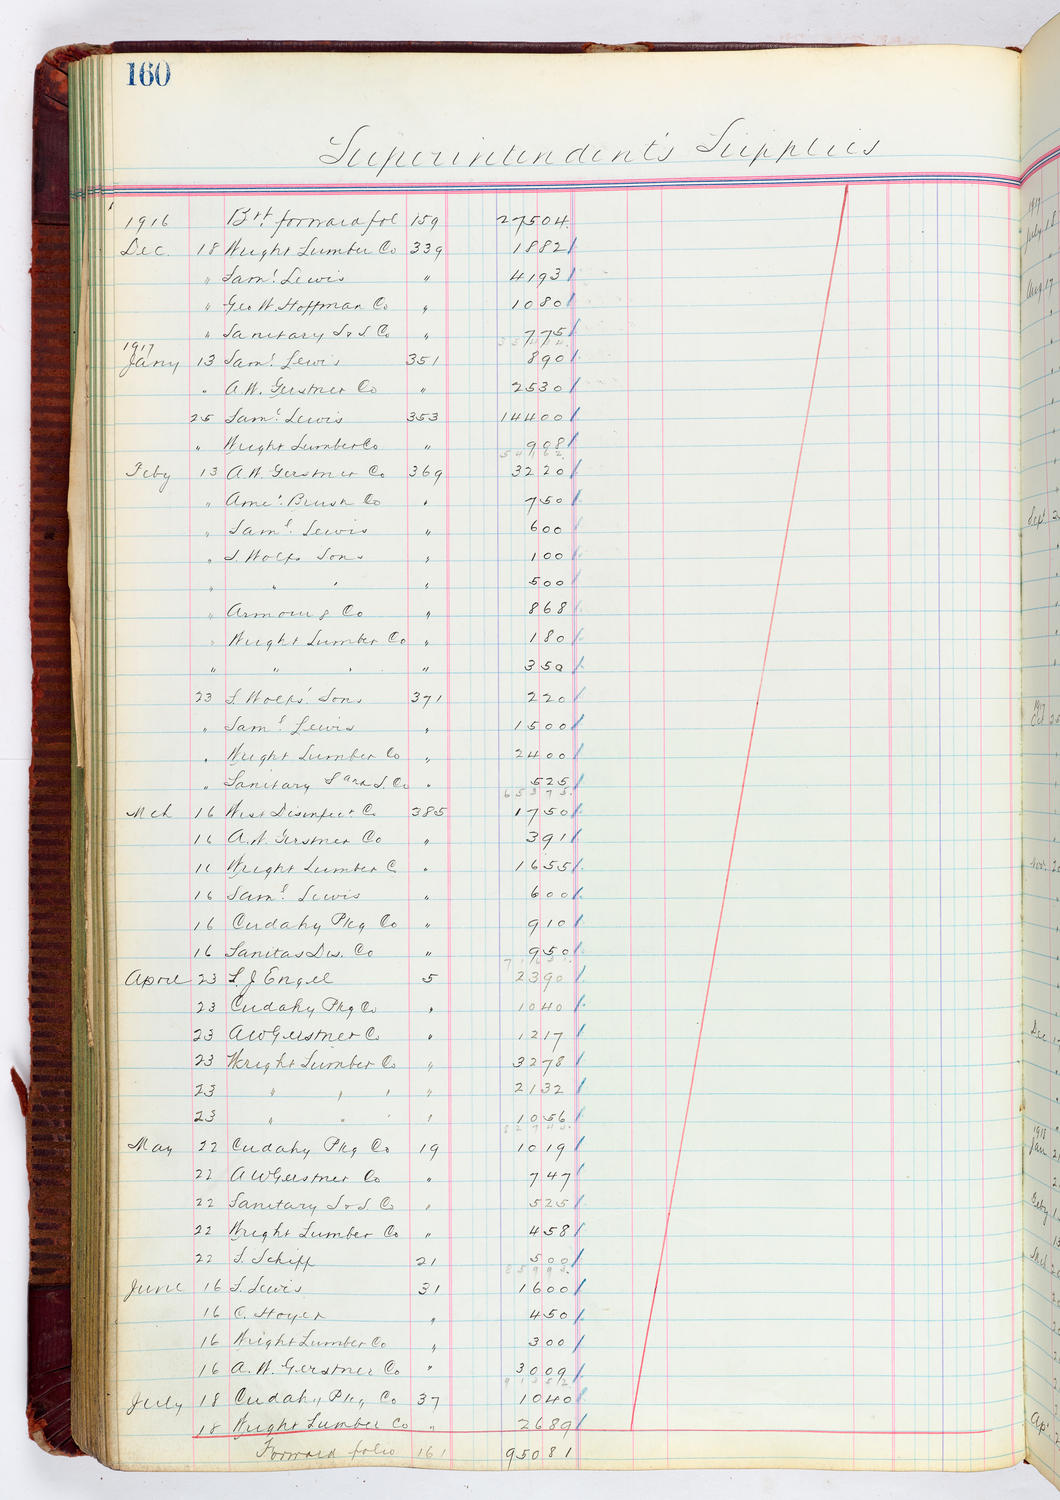 160
Superintendent's Supplies
1916 Brt forward fol 159 27504
Dec. 18 Wright Lumber Co 339 1882
" Saml Lewis " 4193
" Geo W. Hoffman Co " 1080
" Sanitary S & S Co " 775
1917
Jany 13 Saml Lewis 351 890
" A.W. Gerstner Co " 2530
25 Saml Lewis 353 14400
" Wright Lumber Co " 908
Feby 13 A.W. Gerstner Co 369 3220
" Amer. Brush Co " 750
" Saml Lewis " 600
" S. Wolfs Sons " 100
" " " " 500
" Armour & Co " 868
" Wright Lumber Co " 180
" " " " 350
23 S. Wolfs' Sons 371 220
" Saml Lewis " 1500
" Wright Lumber Co " 2400
" Sanitary S and S. Co " 525
65375
Mch 16 West Disinfect Co 385 1750
16 A.W. Gerstner Co " 391
16 Wright Lumber C " 1655
16 Saml Lewis " 600
16 Cudahy Pkg Co " 910
16 Sanitas Dis. Co " 950
April 23 S. J Engel 5 2390
23 Cudahy Pkg Co " 1040
23 AW Gerstner Co " 1217
23 Wright Lumber Co " 3278
23 " " " " 2132
23 " " " " 1056
82745
May 22 Cudahy Pkg Co 19 1019
22 AW Gerstner Co " 747
22 Sanitary S & S. Co " 525
22 Wright Lumber Co " 458
22 S. Schiff 21 500
85993
June 16 S. Lewis 31 1600
16 C. Hoyer " 450
16 Wright Lumber Co " 300
16 A.W. Gerstner Co " 3009
91352
July 18 Cudahy Pkg Co 37 1040
18 Wright Lumber Co " 2689
Forward folio 161 95081